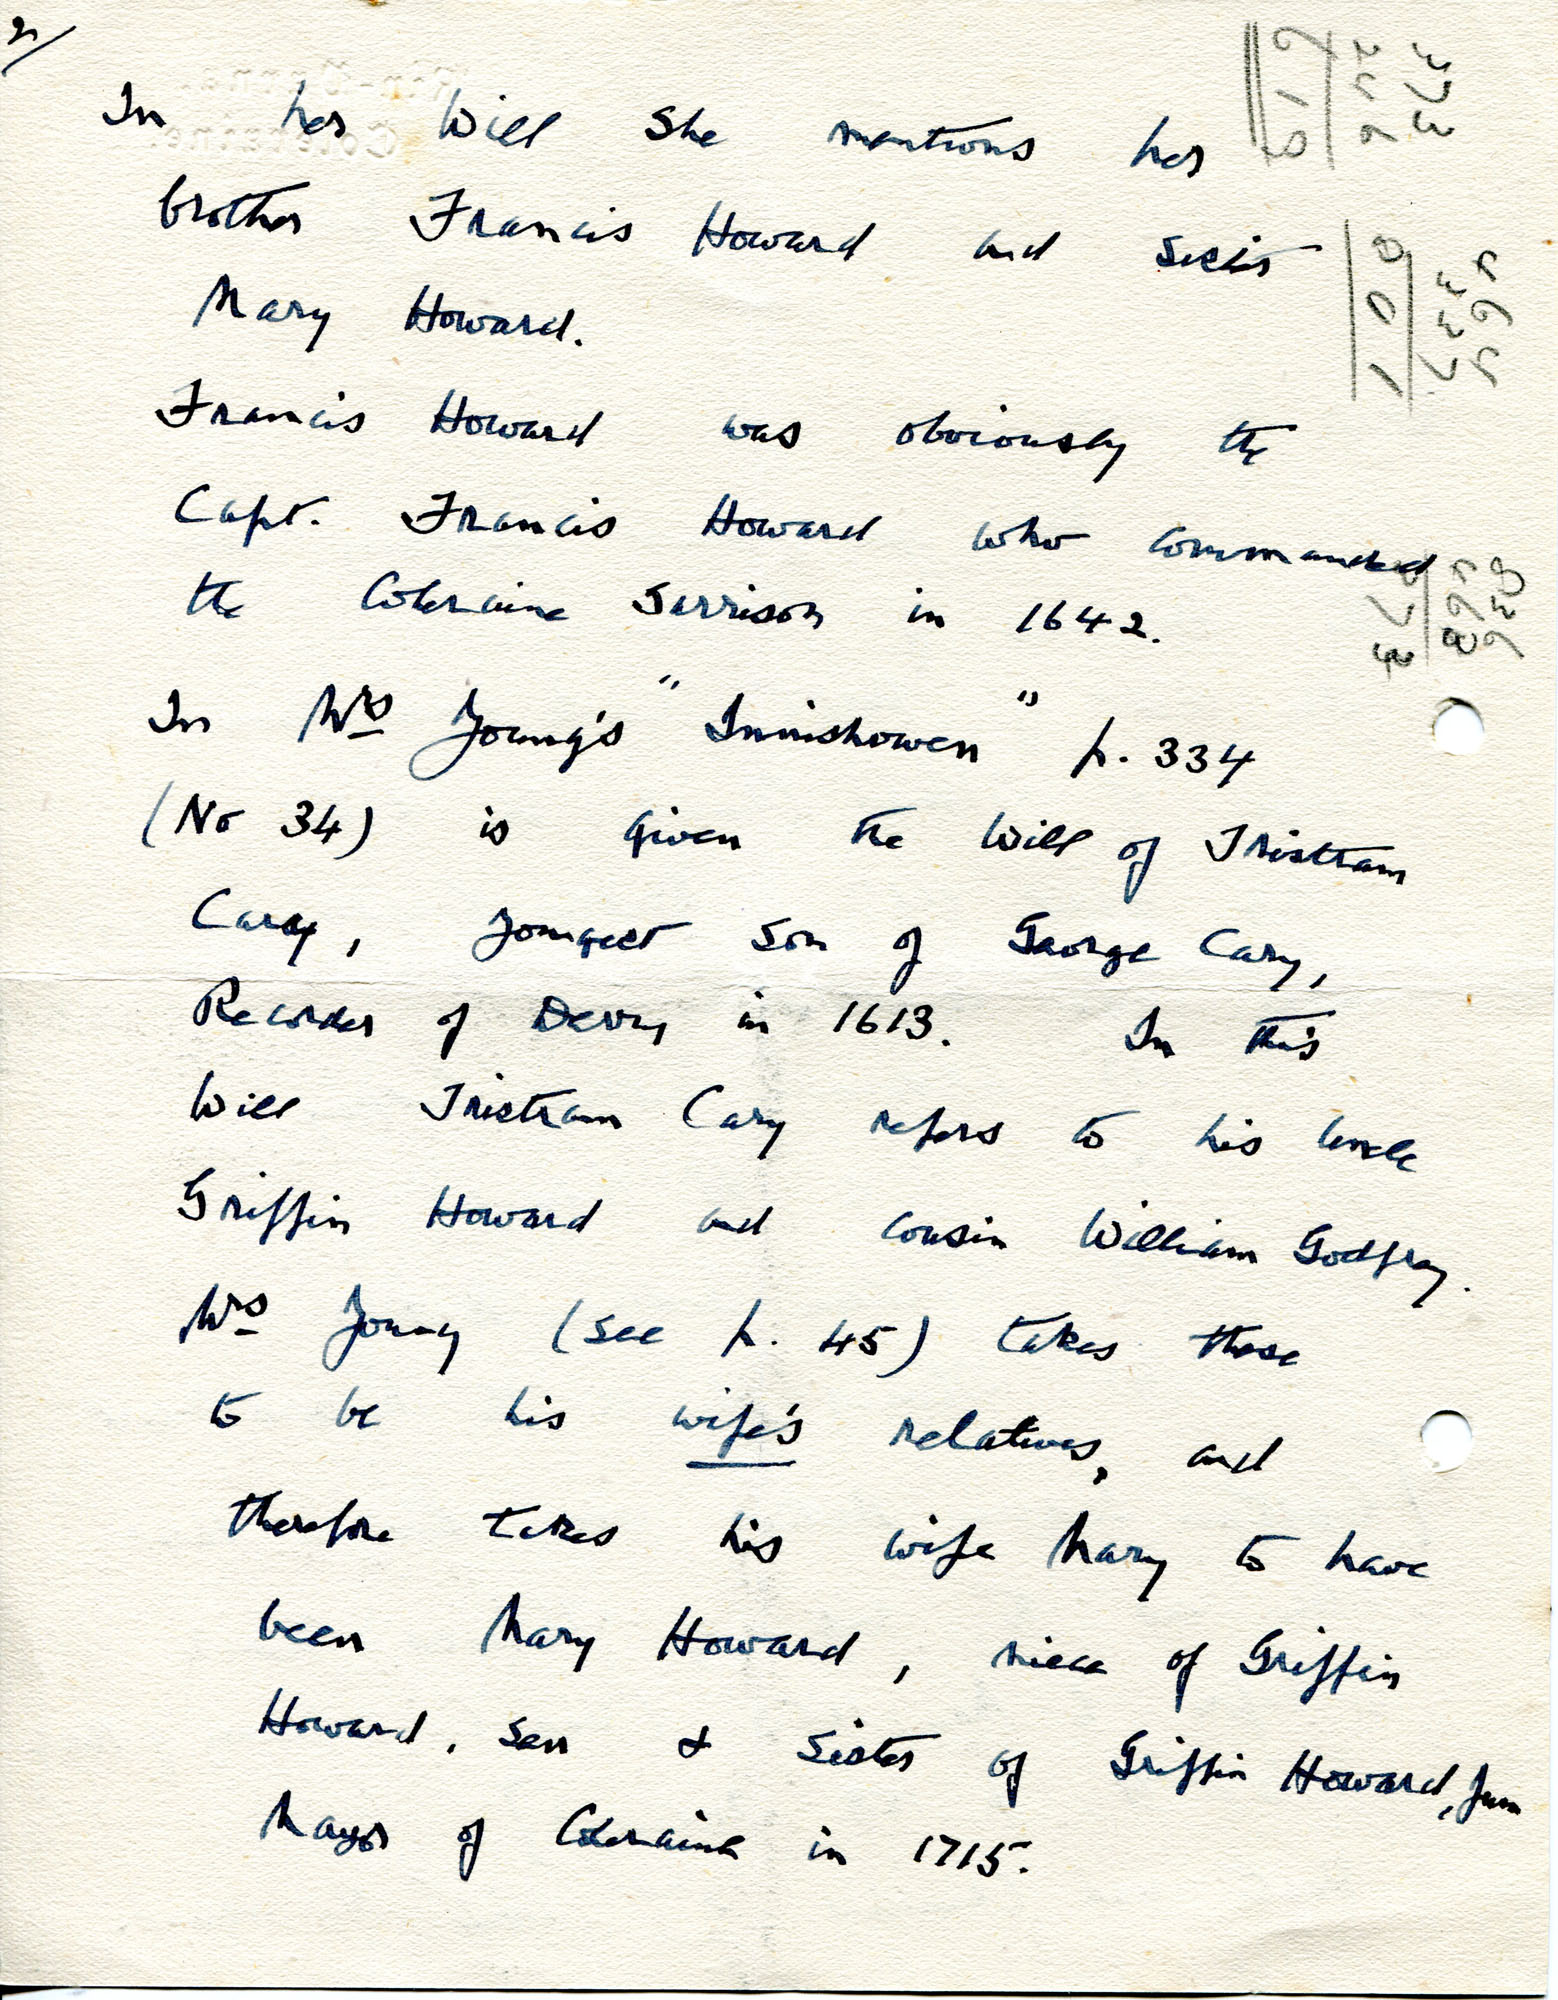 2/
In her Will she mentions her
brother Francis Howard and sister
Mary Howard.
Francis Howard was obviously the
Capt. Francis Howard who commanded
the Coleraine Garrison in 1642.
In Mrs Young's "Innishowen" p. 334
(No 34) is given the Will of Tristram
Cary, youngest son of George Cary,
Recorder of Derry in 1613. In this
Will Tristram Cary refers to his uncle
Griffin Howard and cousin William Godfrey.
Mrs Young (see p. 45) takes these
to be his wife's relatives, and
therefore takes his wife Mary to have
been Mary Howard, niece of Griffin
Howard, Sen & sister of Griffin Howard, Jun
Mayor of Coleraine in 1715.
373
246
619
Coleraine